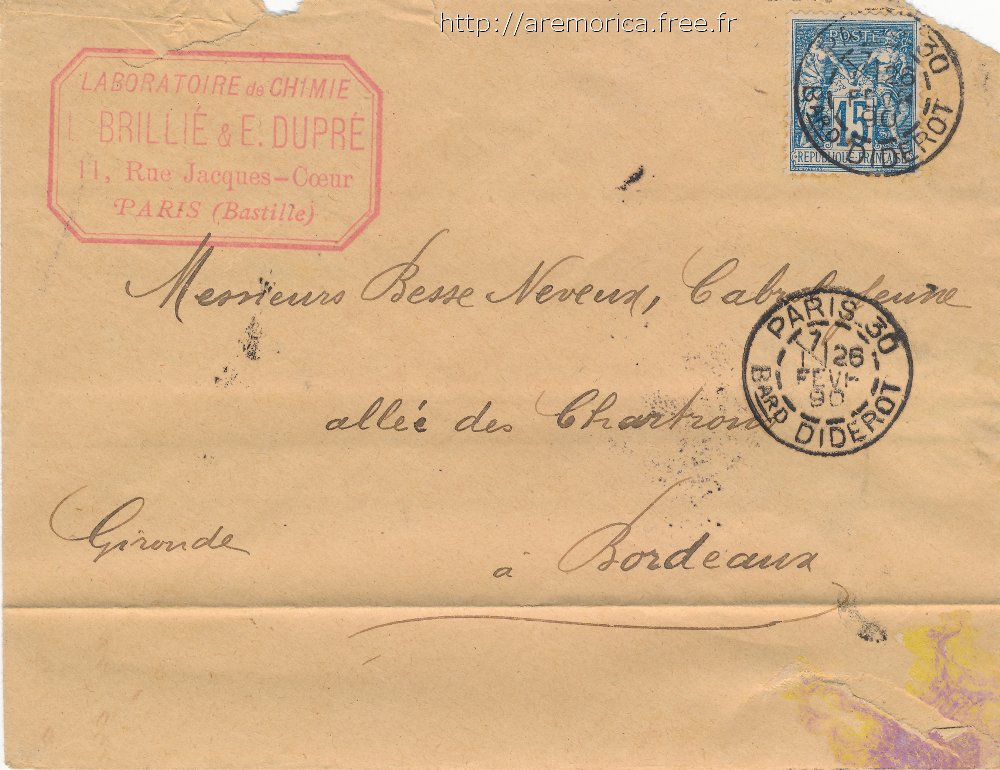 http://aremorica.free.fr
LABORATOIRE de CHIMIE
L. BRILLIÉ & E. DUPRÉ
11, Rue Jacques-Cœur
PARIS (Bastille)
POSTES
15
REPUBLIQUE FRANCAISE
30
FEVR
90
BARD DIDEROT
Messieurs Besse Neveux, Cabrol Jeune
PARIS 30
7
1 26
FEVR
90
BARD DIDEROT
allée des Chartrons
Gironde
à Bordeaux